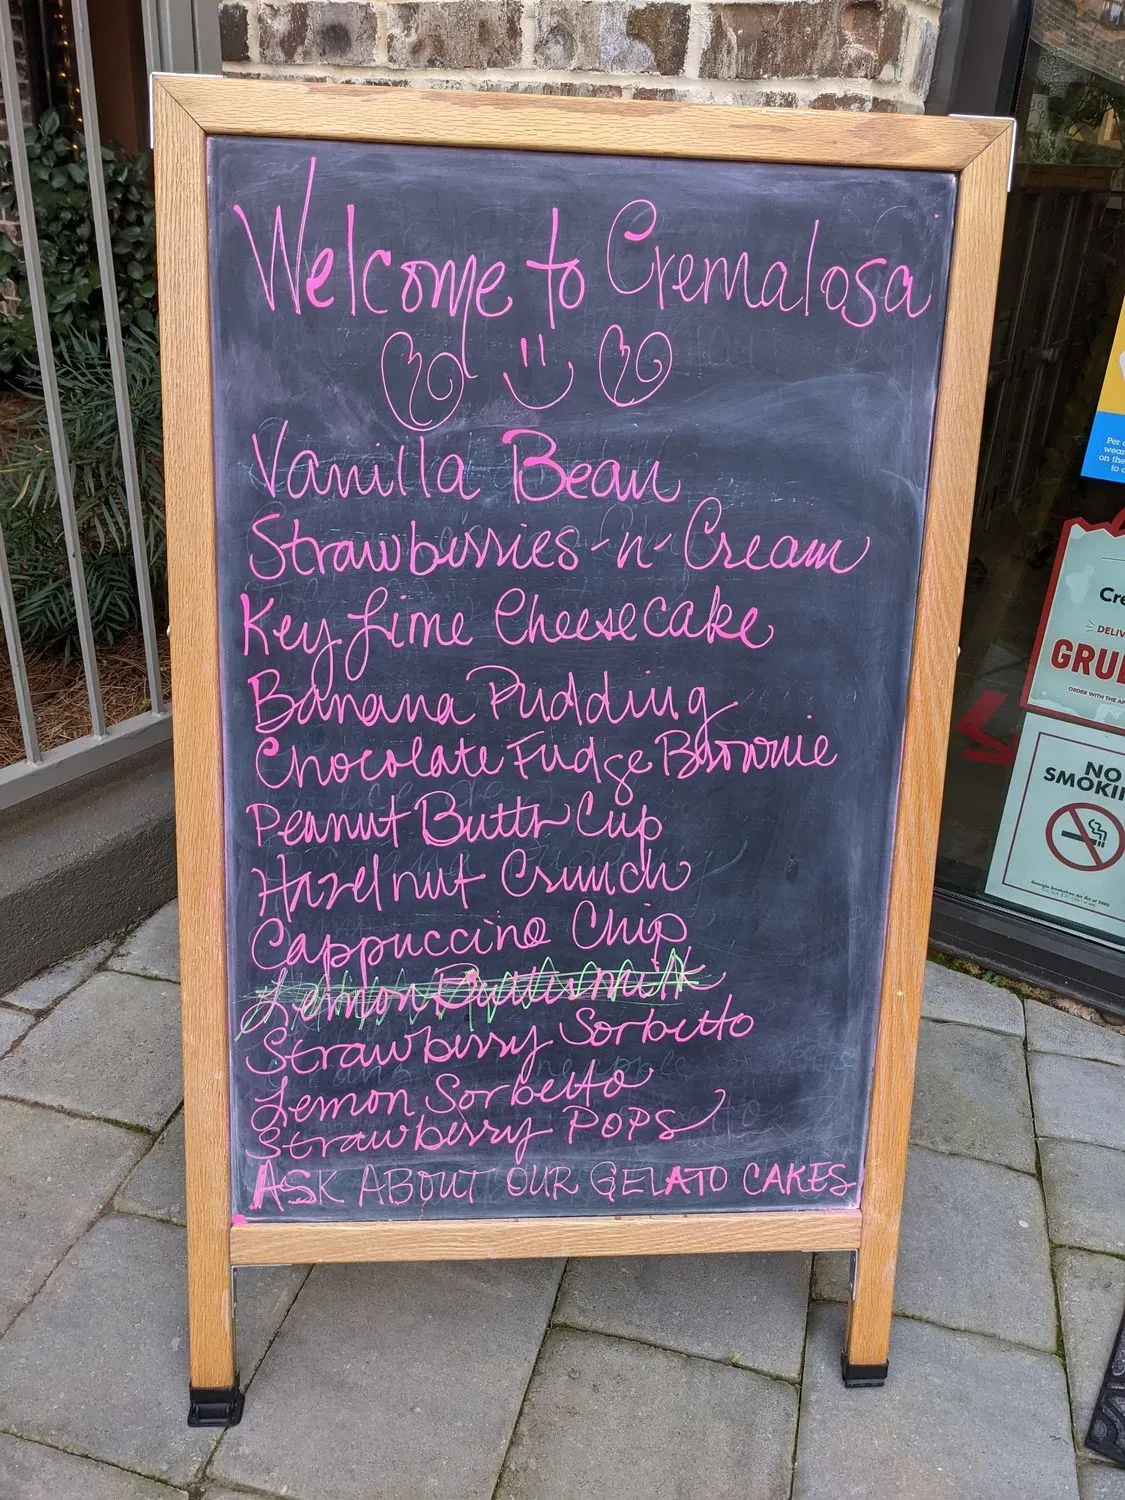 Welcome to Cremalosa
Vanilla Bean
Strawberries-n-Cream
Key Lime Cheesecake
Banana Pudding
Chocolate Fudge Brownie
Peanut Butter Cup
Hazelnut Crunch
Cappuccino Chip
Lemon Buttermilk
Strawberry Sorbetto
Lemon Sorbetto
Strawberry POPS
ASK ABOUT OUR GELATO CAKES
Per
wear
on the
to
Cre
DELIV
GRU
ORDER WITH THE AP
NO
SMOKI
Georgia Smokefree Air Act of 2005